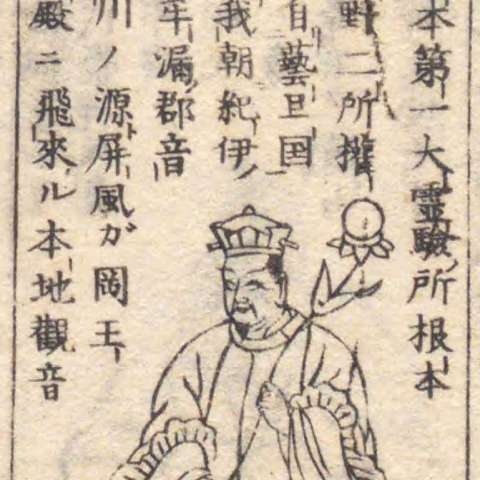 本第一大霊驗所根本
野二所權
自藝旦国
我朝紀伊ノ
牟漏郡音
川ノ源屏風ガ岡玉
殿ニ飛來ル本地觀音